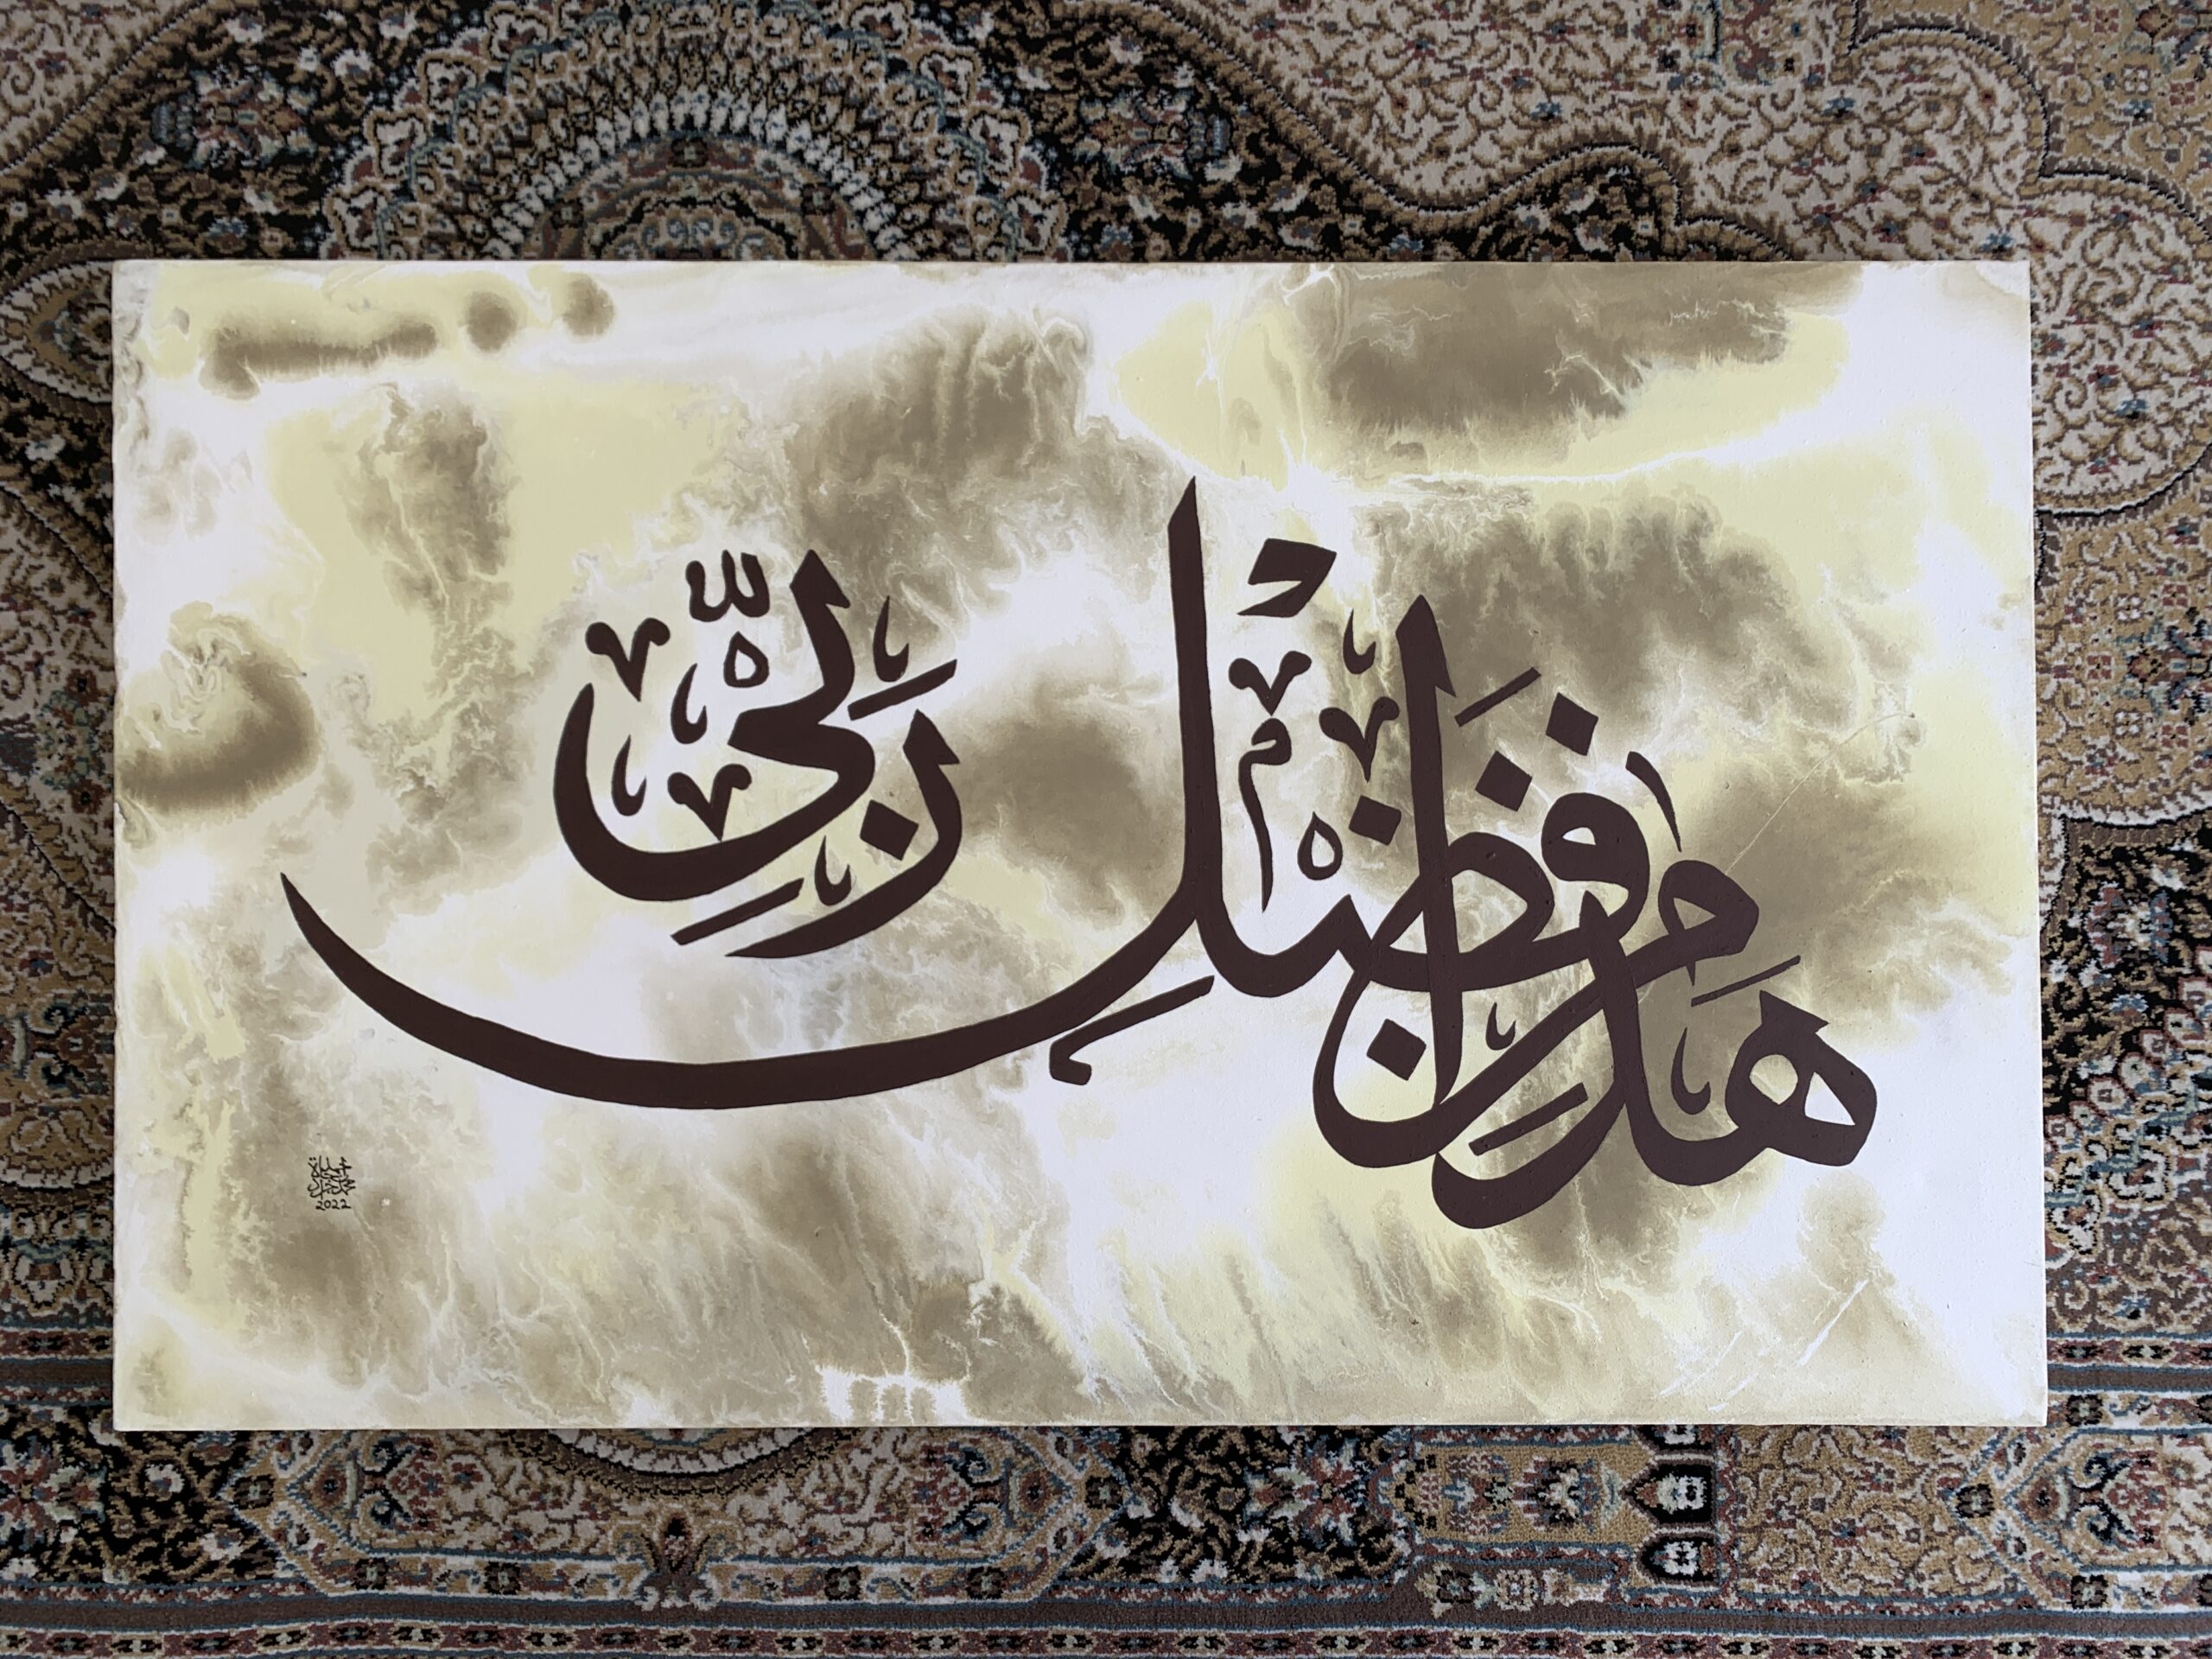 هَذَا مِن فَضْلِ رَبِّي
2022